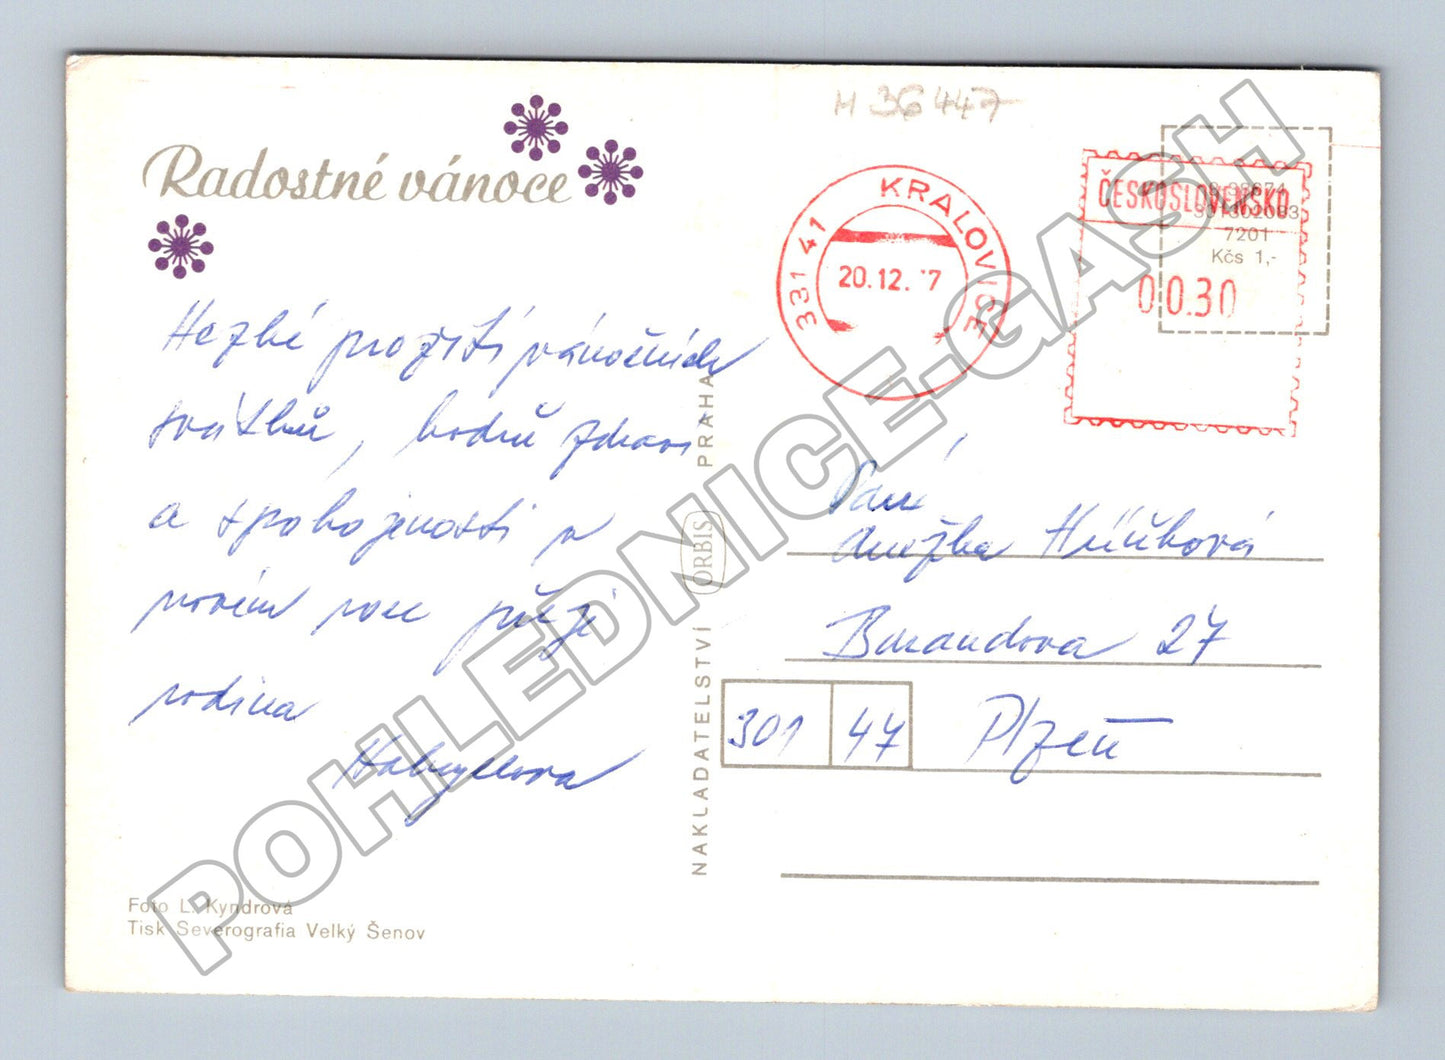 Radostné vánoce
M 36447
331 41 KRALOVICE
20.12. 7
ČESKOSLOVENSKO
00.30
7201
Kčs 1,-
Hezké prožití vánočních
svátků, hodně zdraví
a spokojenosti v
novém roce přeje
rodina
Paní
Anežka
27
301 47 Plzeň
NAKLADATELSTVÍ ORBIS PRAHA
Foto L. Kyndrová
Tisk Severografia Velký Šenov
POHLEDNICE-GASH